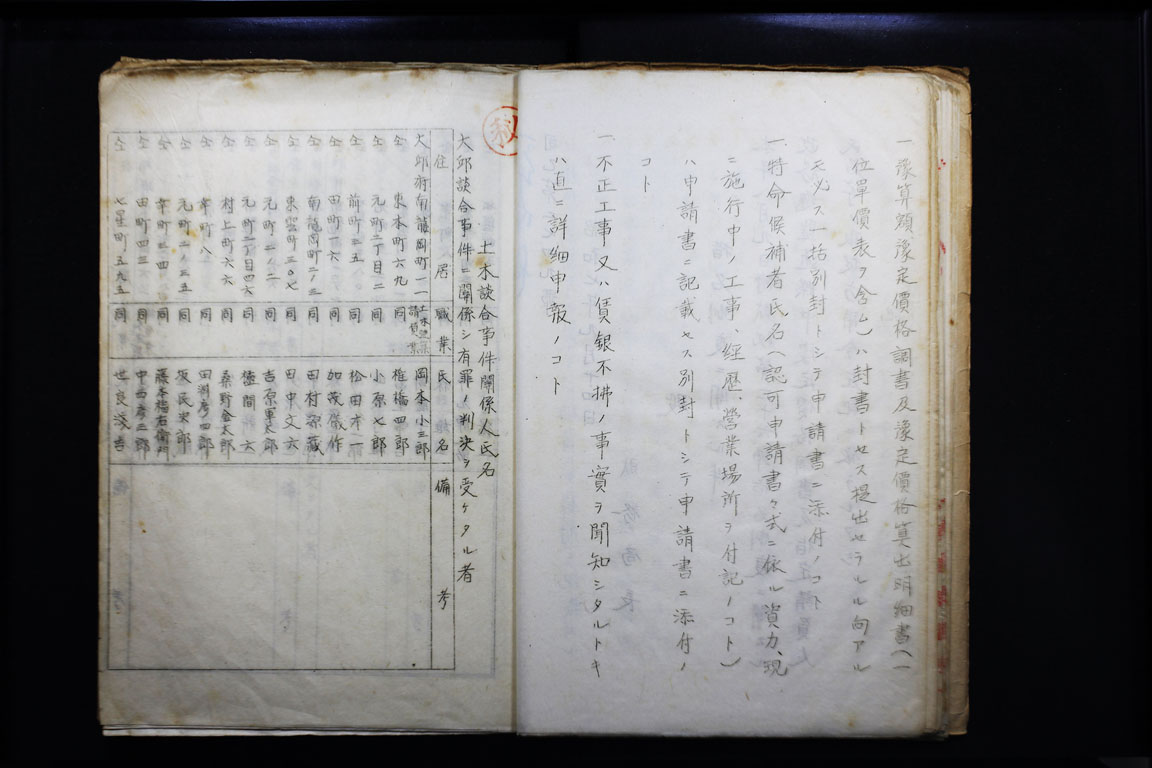 一豫算額豫定價格調書及豫定價格算出明細書(一
位單價表ヲ含ム)ハ封書トセス提出セラルル向アル
モ必ス一括別封トシテ申請書ニ添付ノコト
一、特命候補者氏名(認可申請書々式ニ依ル資力、現
ニ施行中ノ工事、經歴、營業場所ヲ付記ノコト)
ハ申請書ニ記載セス別封トシテ申請書ニ添付ノ
コト
一不正工事又ハ賃銀不拂ノ事實ヲ聞知シタルトキ
ハ直ニ詳細申報ノコト
秘
土木談合事件關係人氏名
大邱談合事件ニ關係シ有罪ノ判決ヲ受ケタル者
住居 職業 氏名 備考
大邱府南龍岡町一一 土木建築請負業 岡本小三郎
仝 東本町六九 同 椎橋四郎
仝 元町二丁目三二 同 小原七郎
仝 前町三五 同 松田市一
仝 田町一六 同 加茂儀作
仝 南龍岡町二ノ三 同 田村
仝 東雲町三〇七 同 田中文六
仝 元町二ノ二 同 吉原軍太郎
仝 元町二丁目四六 同 間六
仝 村上町六六 同 桑野金太郎
仝 幸町八一 同 田渕彦四郎
仝 元町二ノ三五 同 阪民次郎
仝 幸町三四 同 藤本梅右衛門
仝 田町四三 同 中西彦三郎
仝 七星町五九五 同 世良